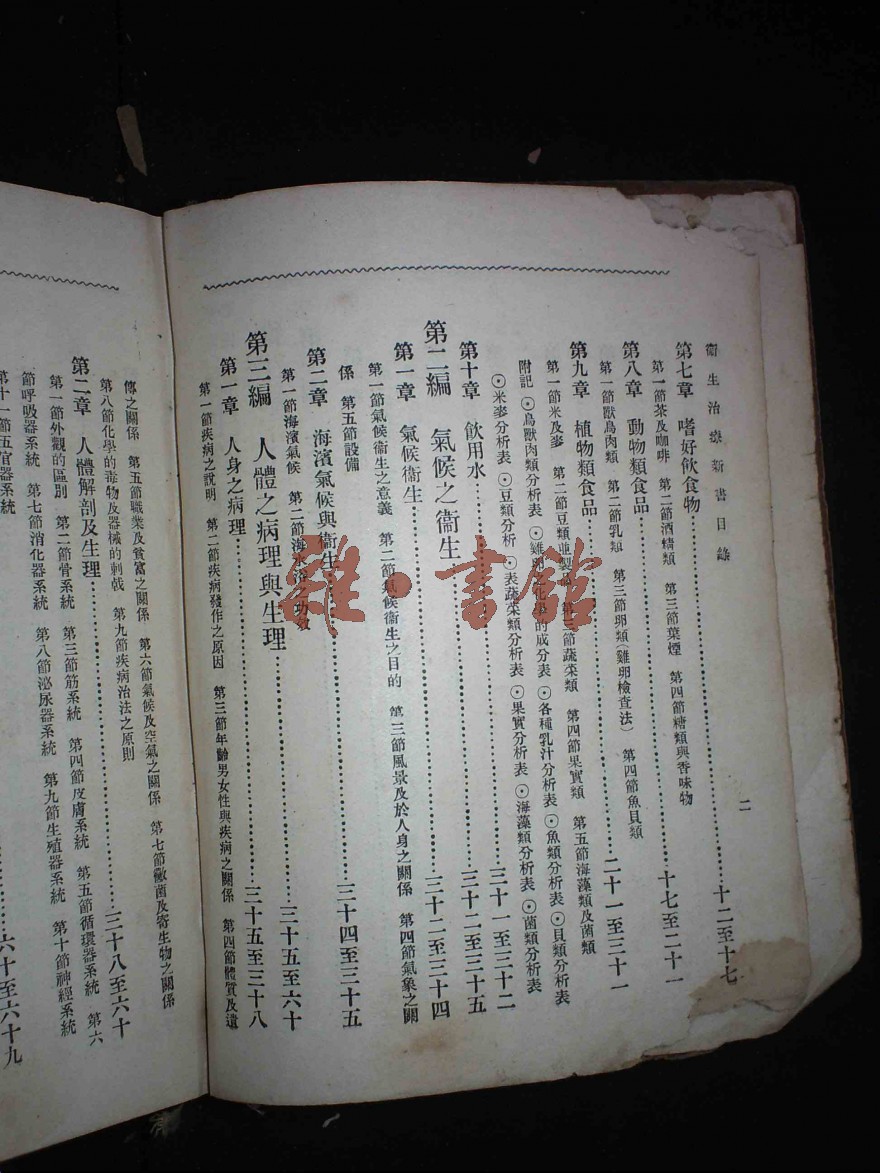 衞生治療新書目錄
二
第七章 嗜好飲食物……十二至十七
第一節茶及咖啡 第二節酒精類 第三節葉煙 第四節糖類與香味物
第八章 動物類食品……十七至二十一
第一節獸鳥肉類 第二節乳類 第三節卵類(雞卵檢查法) 第四節魚貝類
第九章 植物類食品……二十一至三十一
第一節米及麥 第二節豆類並製品 第三節蔬菜類 第四節果實類 第五節海藻類及菌類
附記 ⊙鳥獸肉類分析表 ⊙雞卵之化學的成分表 ⊙各種乳汁分析表 ⊙魚類分析表 ⊙貝類分析表
⊙米麥分析表 ⊙豆類分析 ⊙表蔬菜類分析表 ⊙果實分析表 ⊙海藻類分析表 ⊙菌類分析表
第十章 飲用水……三十一至三十二
第二編 氣候之衞生……三十二至三十五
第一章 氣候衞生……三十二至三十四
第一節氣候衞生之意義 第二節氣候衞生之目的 第三節風景及於人身之關係 第四節氣象之關
係 第五節設備
第二章 海濱氣候與衞生……三十四至三十五
第一節海濱氣候 第二節海水浴之功效
第三編 人體之病理與生理……三十五至六十
第一章 人身之病理……三十五至三十八
第一節疾病之說明 第二節疾病發作之原因 第三節年齡男女性與疾病之關係 第四節體質及遺
傳之關係 第五節職業及貧富之關係 第六節氣候及空氣之關係 第七節黴菌及寄生物之關係
第八節化學的毒物及器械的刺戟 第九節疾病治法之原則
第二章 人體解剖及生理……三十八至六十
第一節外觀的區別 第二節骨系統 第三節筋系統 第四節皮膚系統 第五節循環器系統 第六
節呼吸器系統 第七節消化器系統 第八節泌尿器系統 第九節生殖器系統 第十節神經系統
第十一節五官器系統
六十至六十九
雜·書館